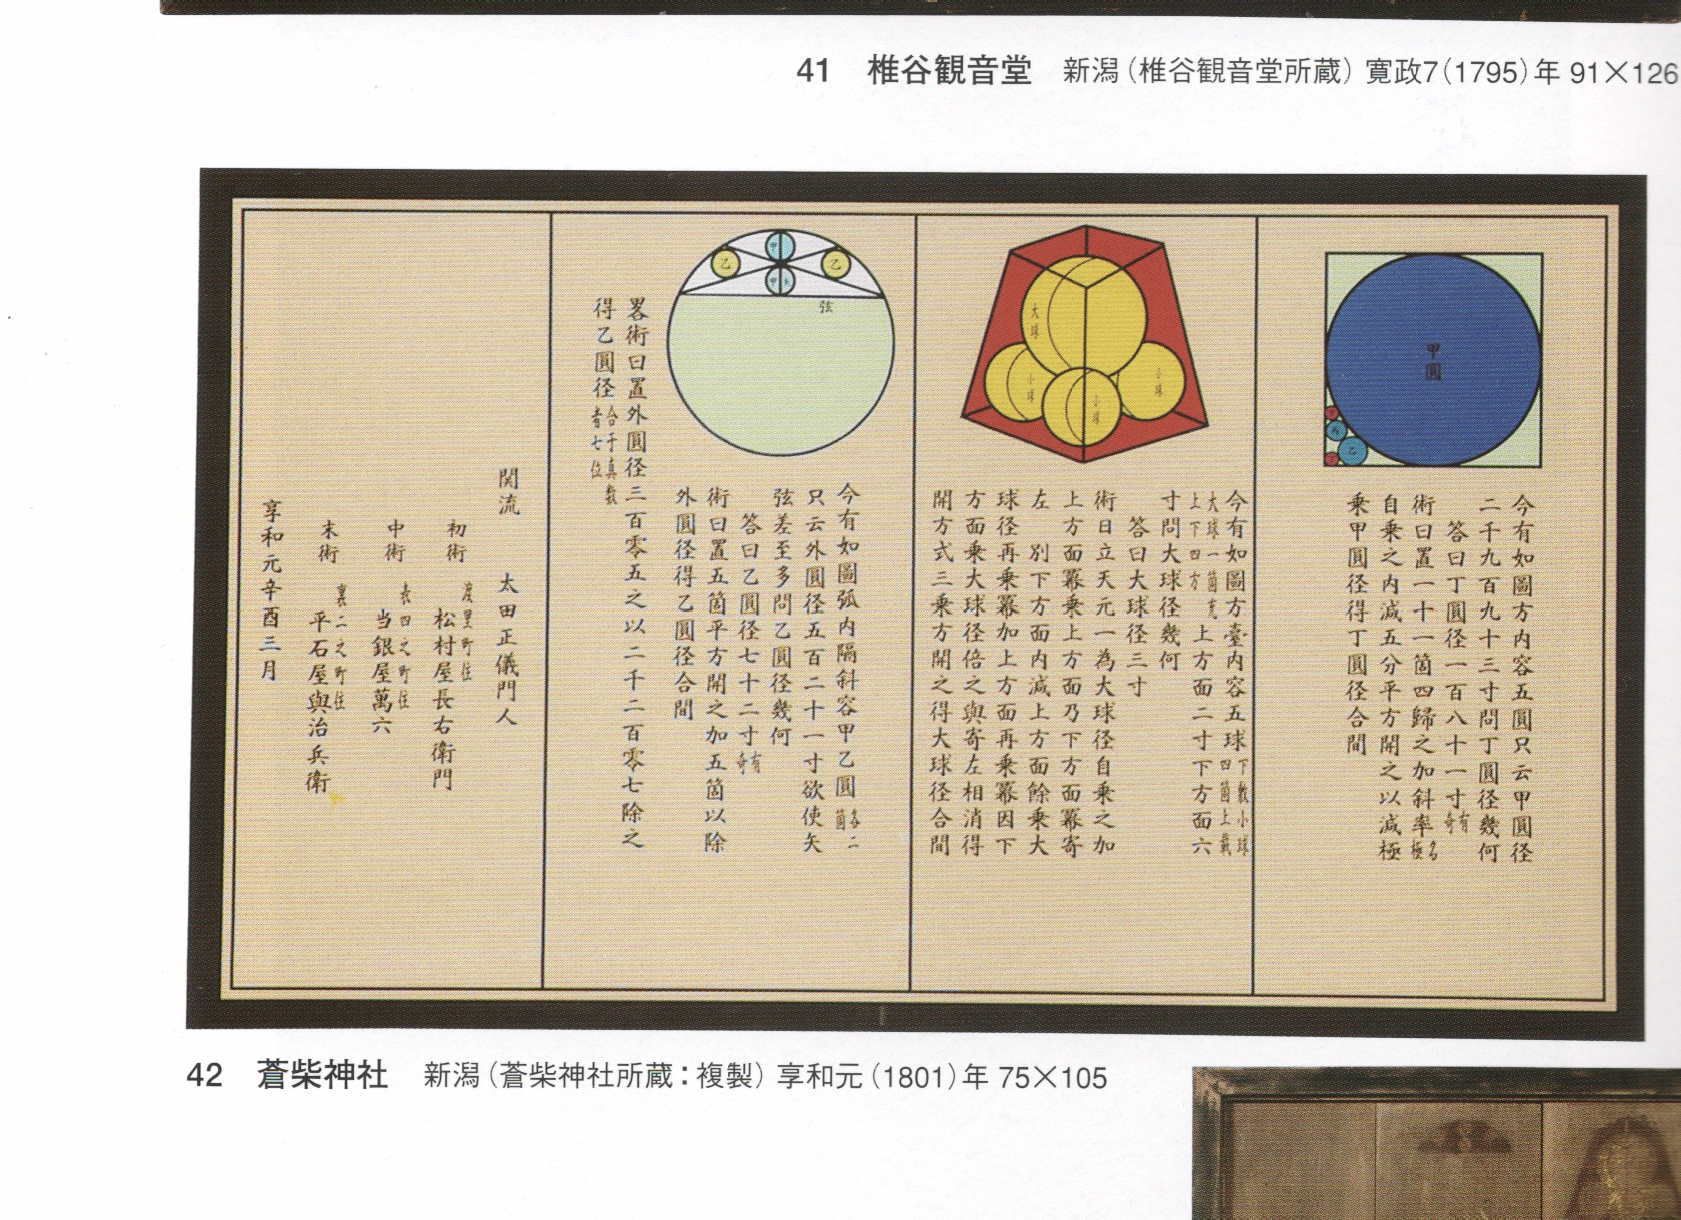 41 椎谷観音堂 新潟（椎谷観音堂所蔵）寛政7（1795）年 91×126
甲圓
乙
丙
丁
丁
今有如圖方内容五圓只云甲圓径
二千九百九十三寸問丁圓径幾何
答曰丁圓径一百八十一寸有奇
術曰置一十一箇四歸之加斜率名極
自乗之内減五分平方開之以減極
乗甲圓径得丁圓径合問
大球
小球
小球
小球
今有如圖方臺内容五球下數小球四箇上載
大球一箇充上下四方上方面二寸下方面六
寸問大球径幾何
答曰大球径三寸
術曰立天元一為大球径自乗之加
上方面冪乗上方面乃下方面冪寄
左 別下方面内減上方面餘乗大
球径再乗冪加上方面再乗冪因下
方面乗大球径倍之與寄左相消得
開方式三乗方開之得大球径合問
甲
乙
乙
甲
矢
弦
今有如圖弧内隔斜容甲乙圓各二箇
只云外圓径五百二十一寸欲使矢
弦差至多問乙圓径幾何
答曰乙圓径七十二寸有奇
術曰置五箇平方開之加五箇以除
外圓径得乙圓径合問
畧術曰置外圓径三百零五之以二千二百零七除之
得乙圓径合于真數者七位
関流 太田正儀門人
初術 渡里町住 松村屋長右衛門
中術 表四之町住 当銀屋萬六
末術 裏二之町住 平石屋與治兵衛
享和元辛酉三月
42 蒼柴神社 新潟（蒼柴神社所蔵：複製）享和元（1801）年 75×105